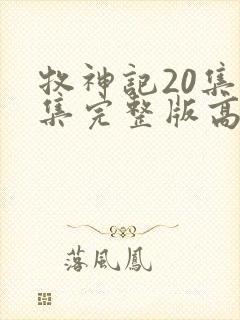 牧神記20集
集完整版高
落風鳳